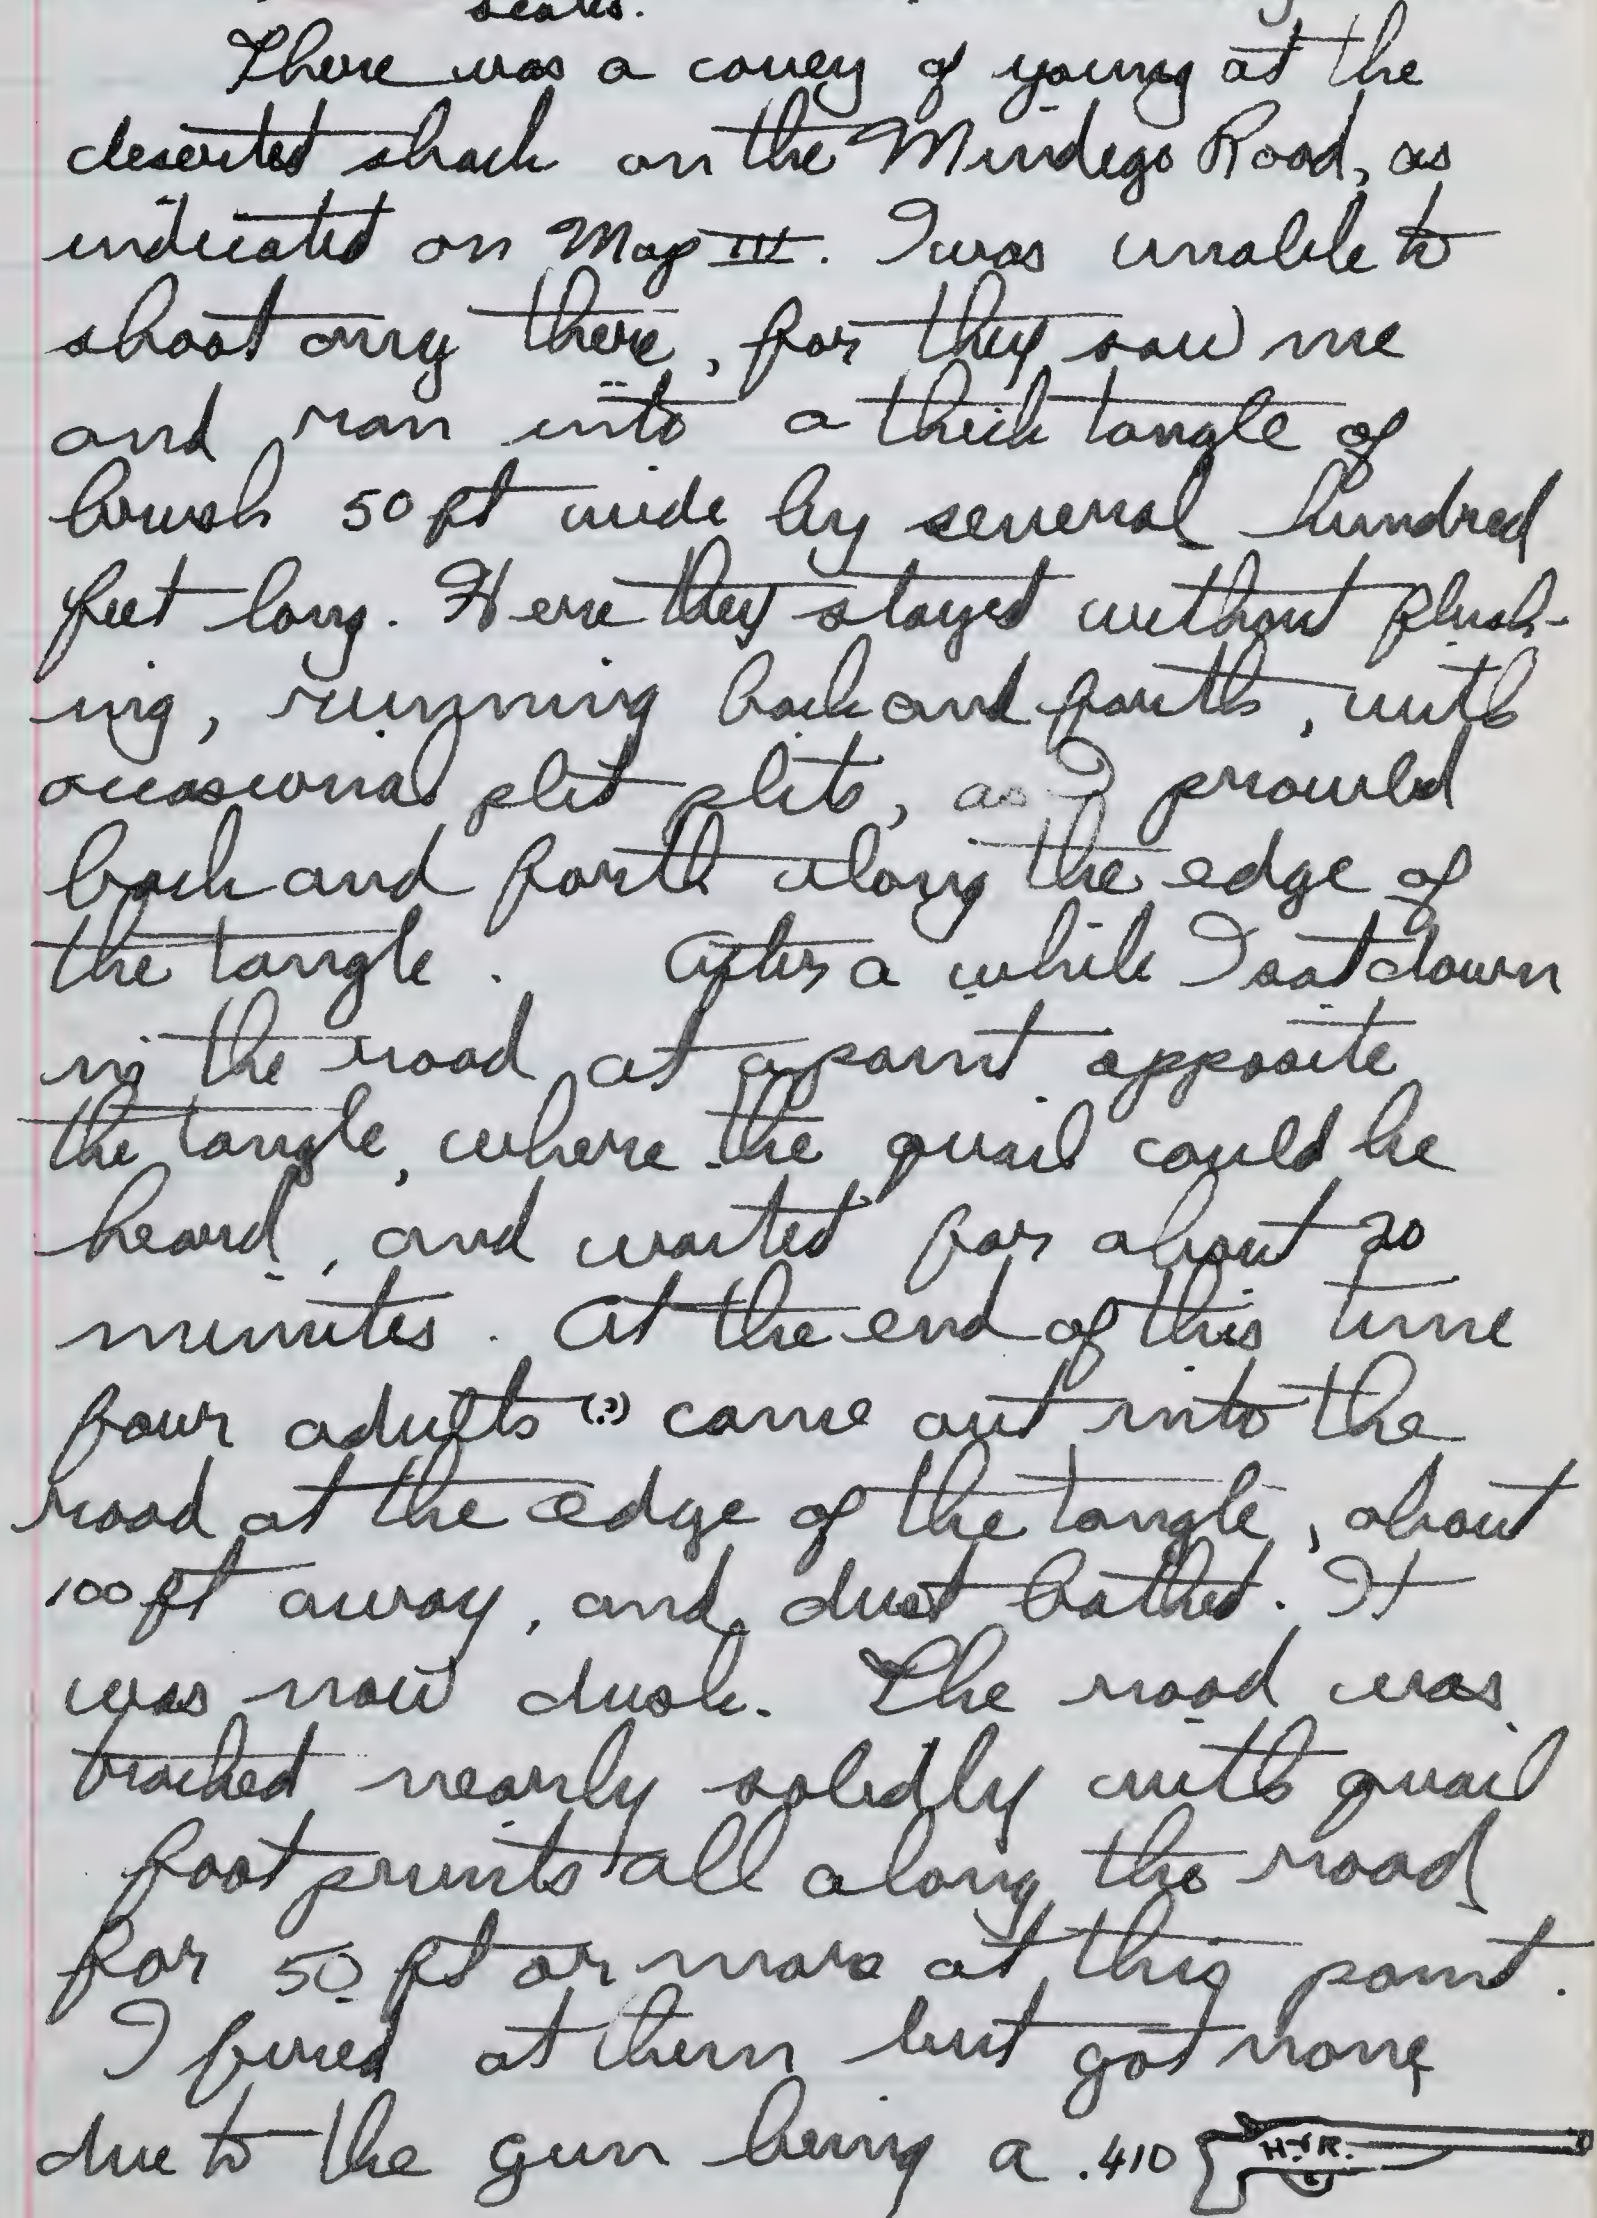 seats.
There was a covey of young at the
deserted shack on the Mindego Road, as
indicated on Map III. I was unable to
shoot any there, for they saw me
and ran into a thick tangle of
brush 50 ft wide by several hundred
feet long. Here they stayed without flush-
ing, running back and forth, with
occasional plit plits, as I prowled
back and forth along the edge of
the tangle. After a while I sat down
in the road at a point opposite
the tangle, where the quail could be
heard, and waited for about 20
minutes. At the end of this time
four adults (?) came out into the
road at the edge of the tangle, about
100 ft away, and dust bathed. It
was now dusk. The road was
tracked nearly solidly with quail
foot prints all along the road
for 50 ft or more at this point.
I fired at them but got none
due to the gun being a .410 H.&R.